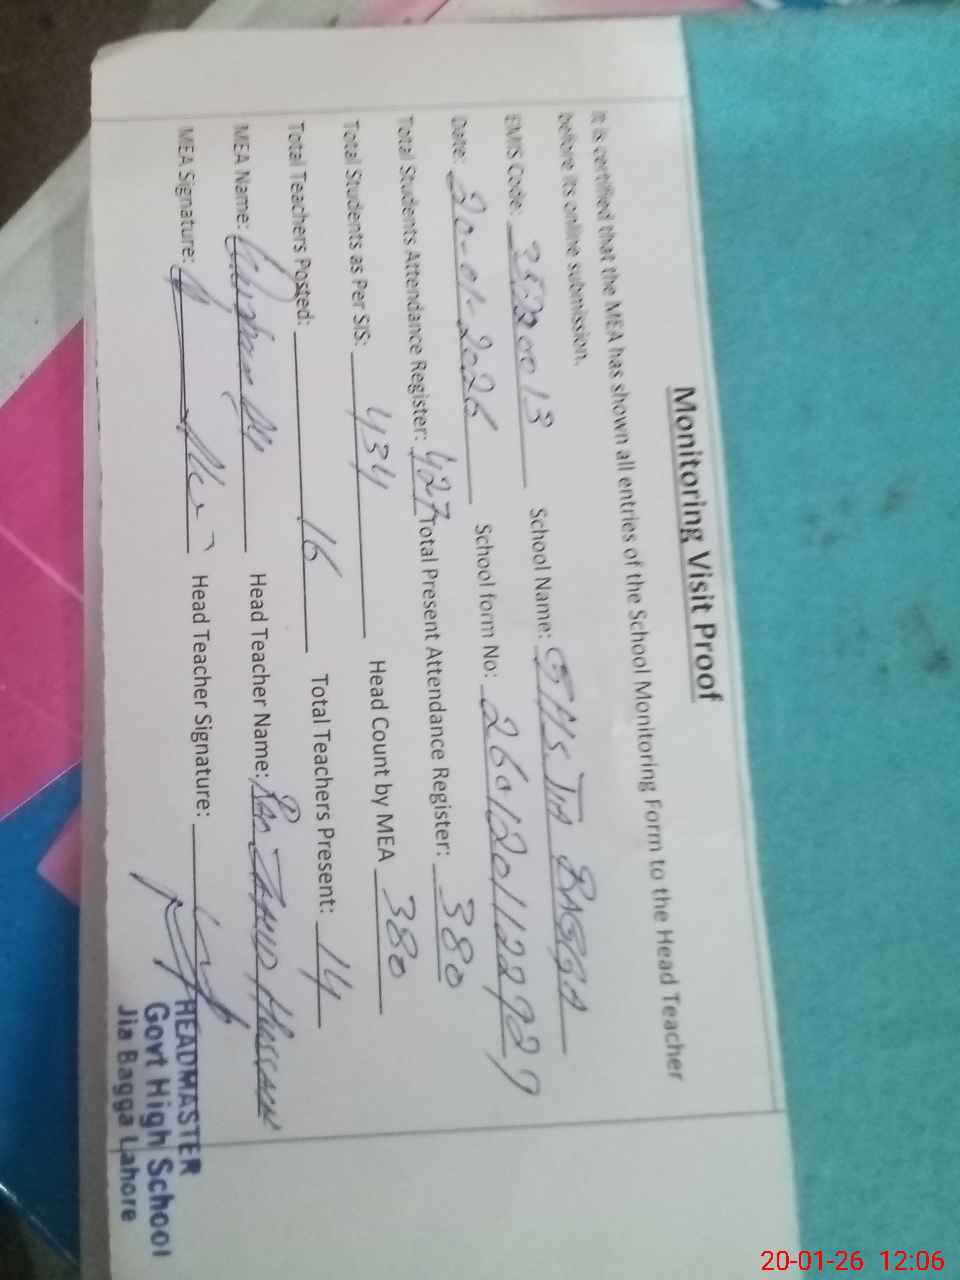 Monitoring Visit Proof
It is certified that the MEA has shown all entries of the School Monitoring Form to the Head Teacher
before its online submission.
EMIS Code: 35220013 School Name: GHS JIA BAGGA
Date: 20-01-2026 School form No:
Total Students Attendance Register: 427 Total Present Attendance Register: 380
Total Students as Per SIS: 434 Head Count by MEA 380
Total Teachers Posted: 16 Total Teachers Present: 14
MEA Name: Head Teacher Name: Hussain
MEA Signature: Head Teacher Signature:
HEADMASTER
Govt High School
Jia Bagga Lahore
20-01-26 12:06